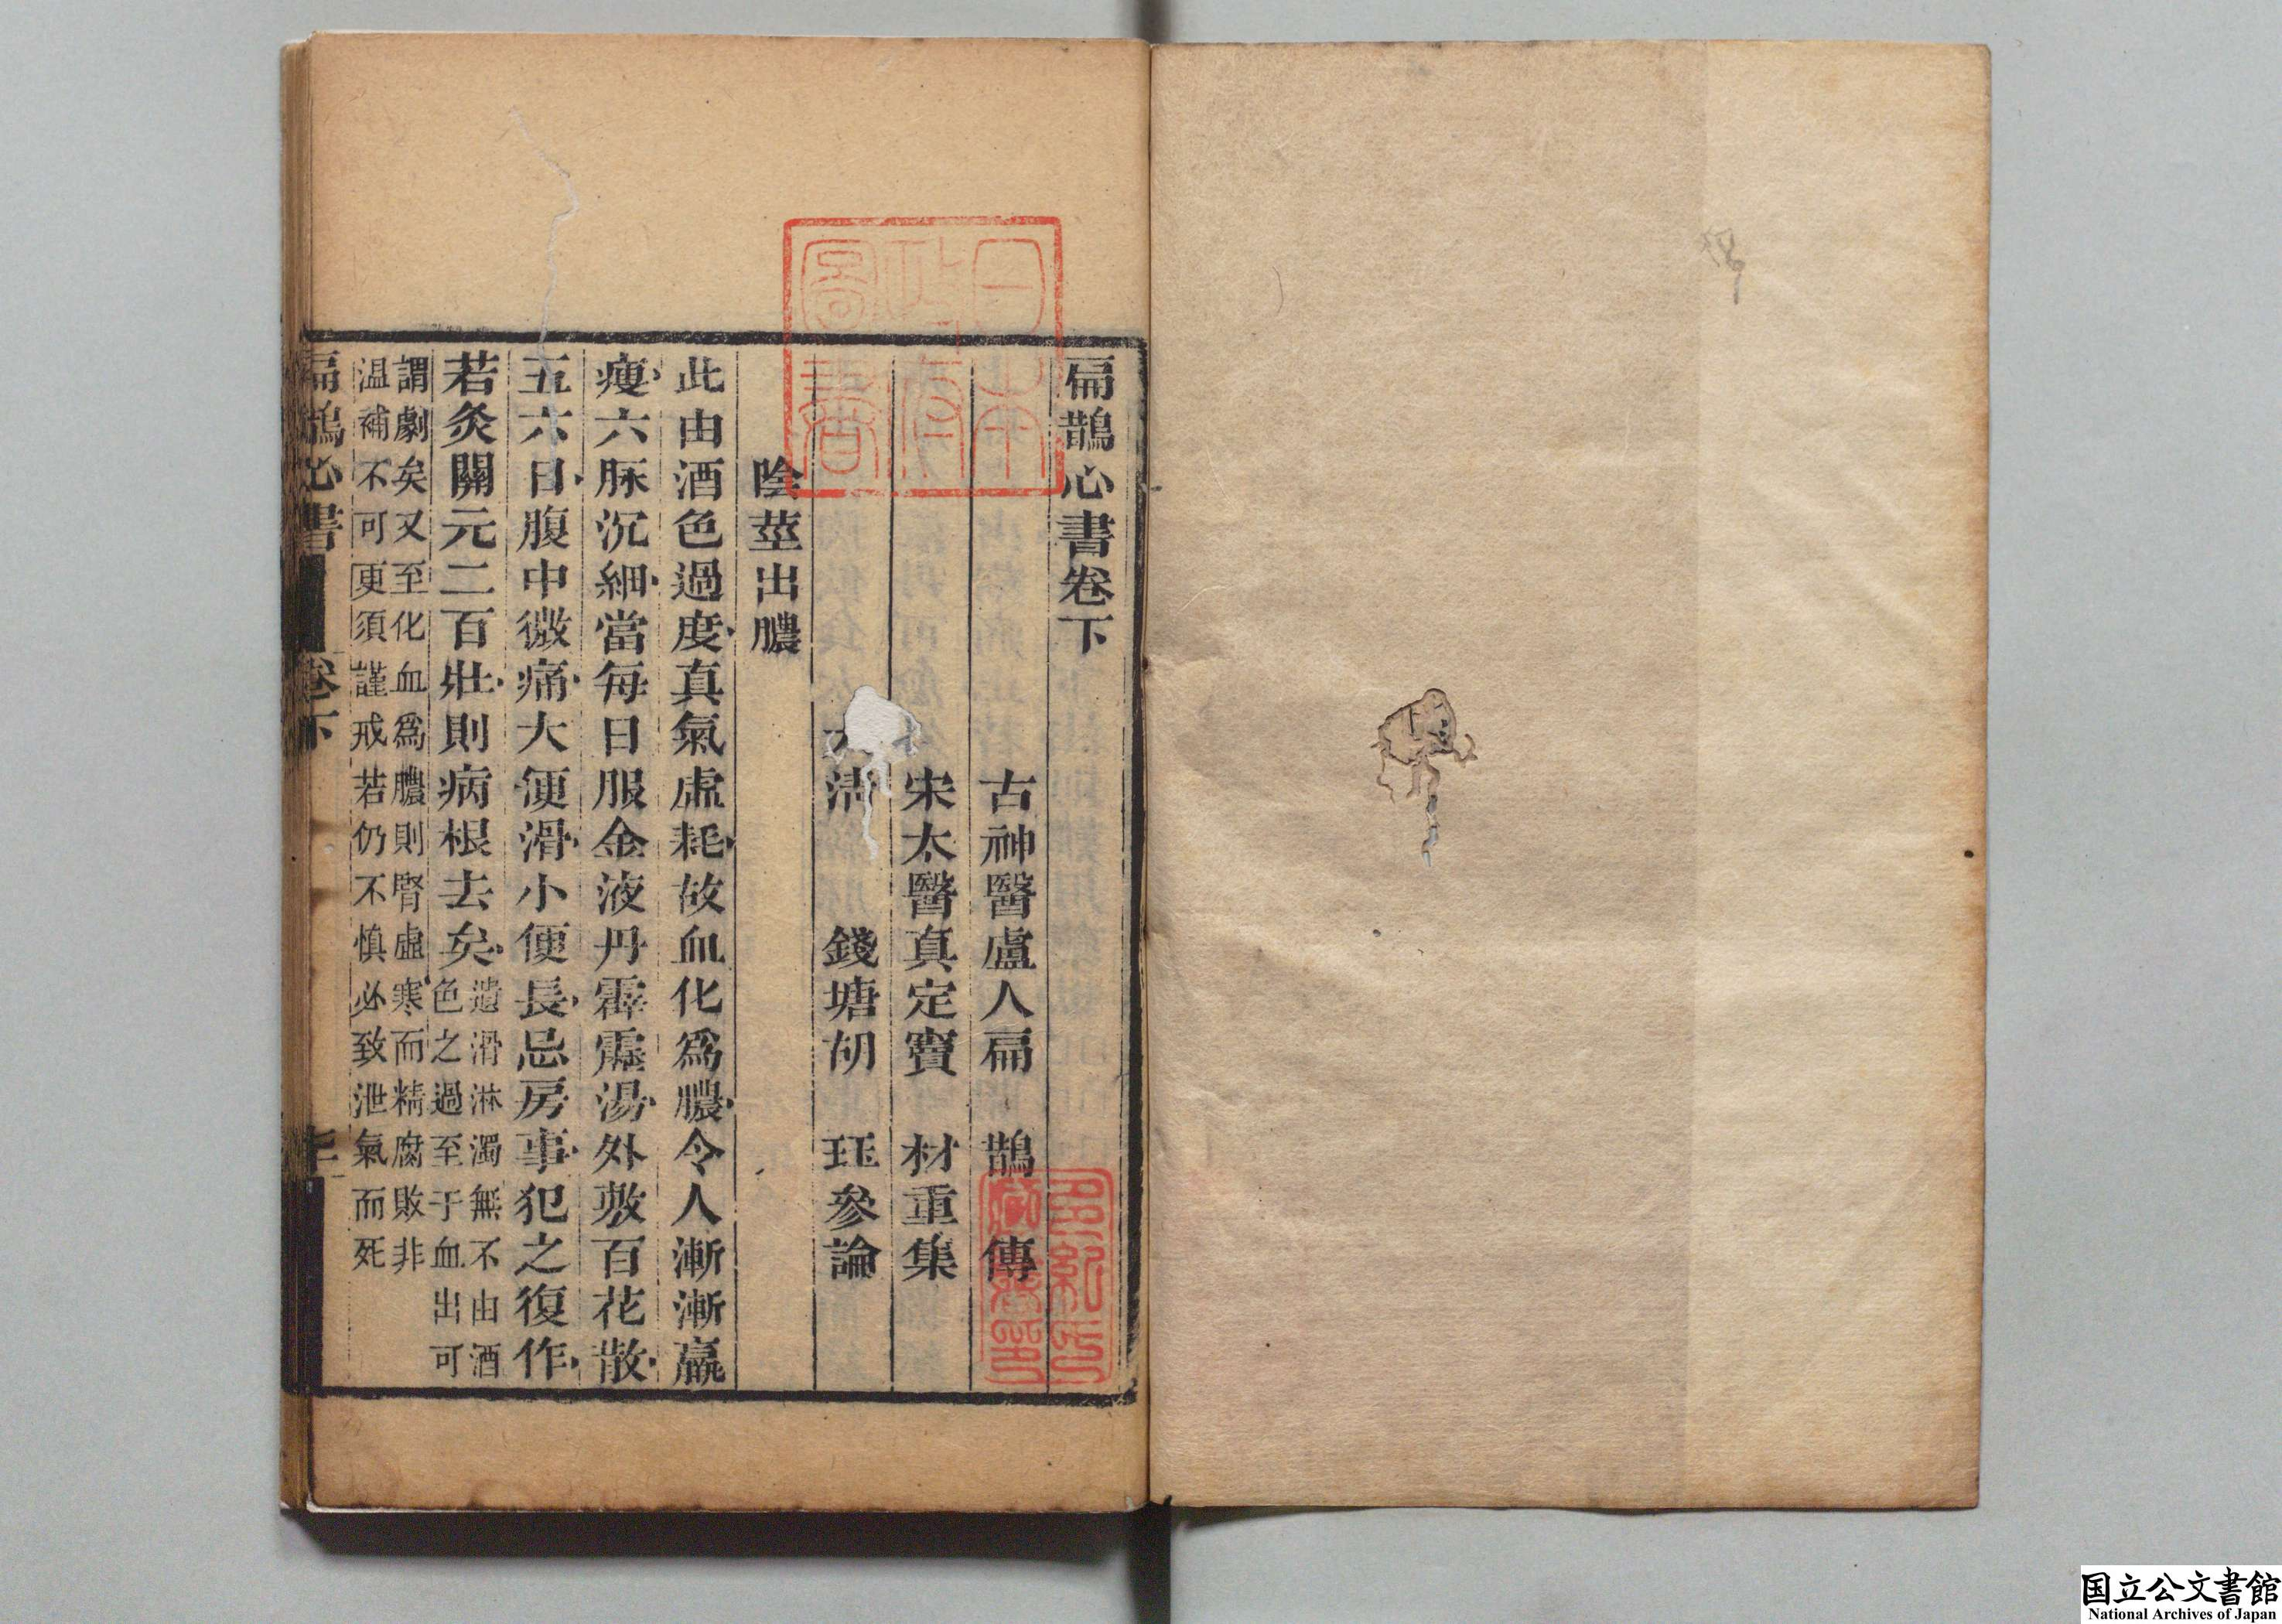 扁鵲心書卷下
古神醫盧人扁　鵲傳
宋太醫真定竇　材重集
清　　錢塘胡　珏參論
陰莖出膿
此由酒色過度真氣虛耗故血化爲膿令人漸漸羸
瘦六脉沉細當每日服金液丹霹靂湯外敷百花散
五六日腹中微痛大便滑小便長忌房事犯之復作
若灸關元二百壯則病根去矣遺滑淋濁無不由酒
色之過至于血出可
謂劇矣又至化血爲膿則腎虛寒而精腐敗非
温補不可更須謹戒若仍不慎必致泄氣而死
扁鵲心書　卷下
日本政府圖書
国立公文書館
National Archives of Japan